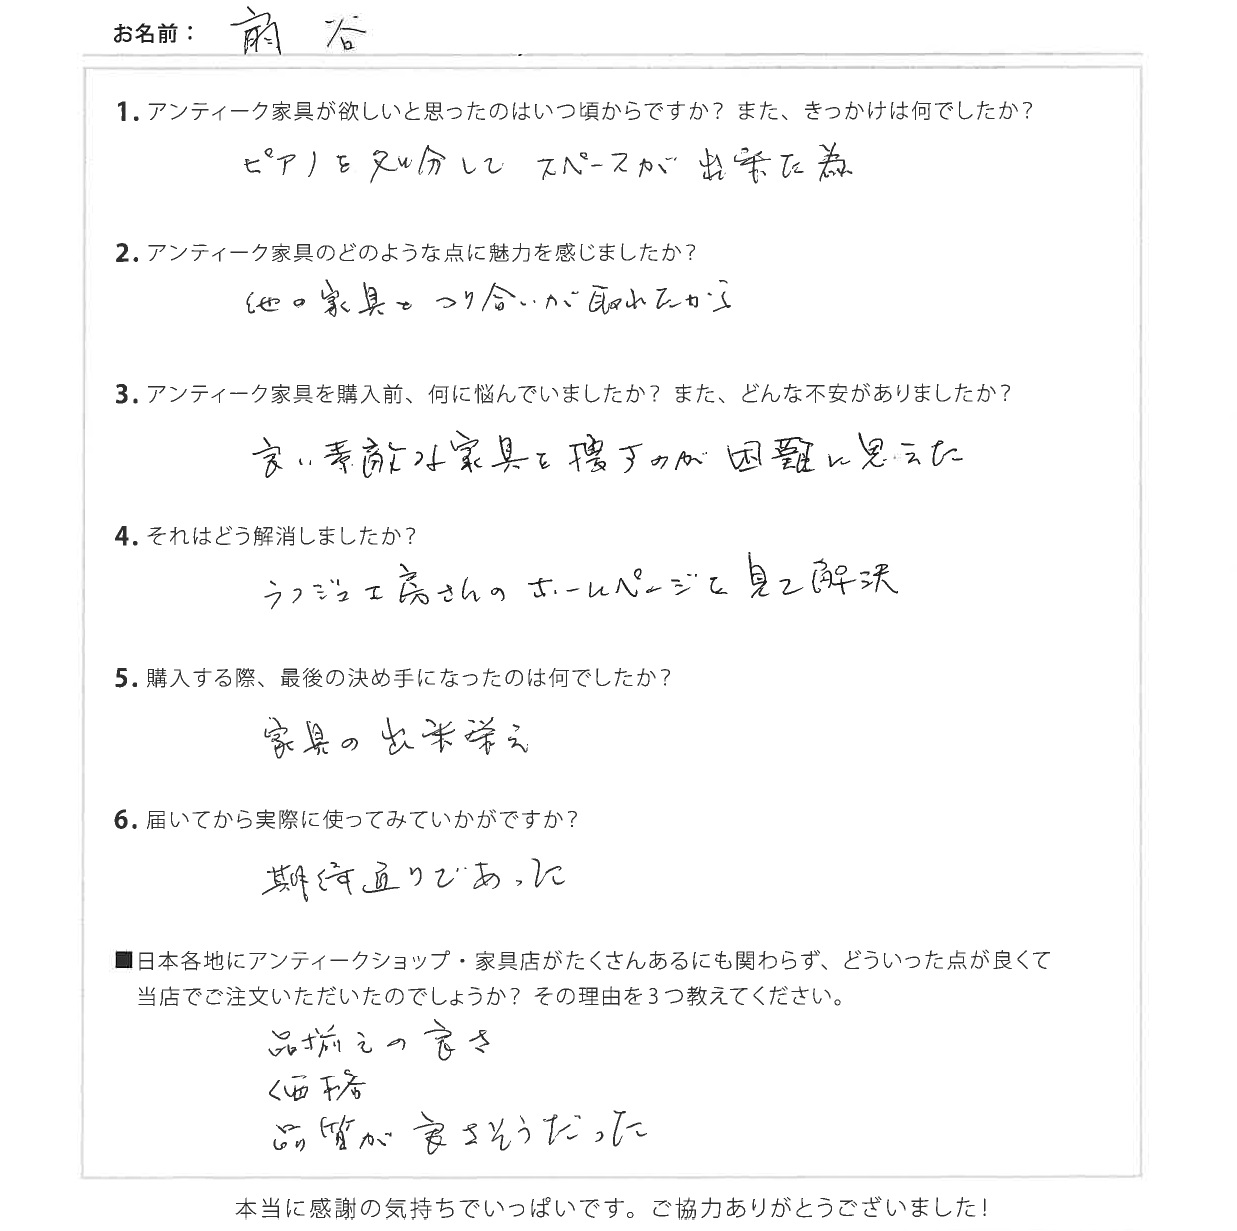 お名前： 前谷
1. アンティーク家具が欲しいと思ったのはいつ頃からですか？ また、きっかけは何でしたか？
ピアノを処分して スペースが 出来た為
2. アンティーク家具のどのような点に魅力を感じましたか？
他の家具と つり合いが取れたから
3. アンティーク家具を購入前、何に悩んでいましたか？ また、どんな不安がありましたか？
良い素敵な家具を捜すのが 困難に思えた
4. それはどう解消しましたか？
ラフジュ工房さんの ホームページを見て解決
5. 購入する際、最後の決め手になったのは何でしたか？
家具の出来栄え
6. 届いてから実際に使ってみていかがですか？
期待通りであった
■日本各地にアンティークショップ・家具店がたくさんあるにも関わらず、どういった点が良くて
当店でご注文いただいたのでしょうか？ その理由を３つ教えてください。
品揃えの良さ
価格
品質が良さそうだった
本当に感謝の気持ちでいっぱいです。ご協力ありがとうございました！